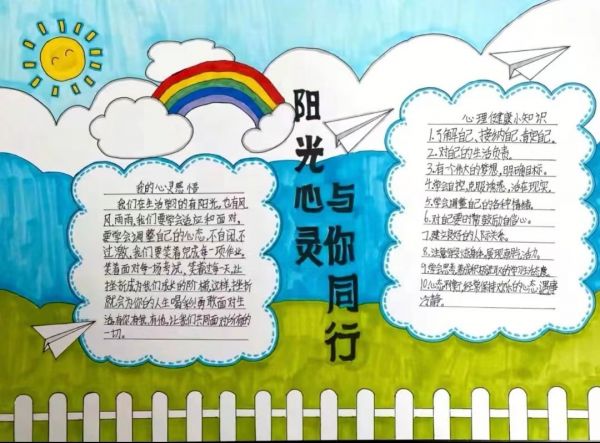 阳光心灵
与你同行
我的心灵感悟
我们在生活学习的有阳光，也有风
风雨雨，我们要学会适应和面对，
要学会调整自己的心态，不自闭，不
过激，我们要笑着完成每一项作业，
笑着面对每一场考试，笑着过每一天，让
挫折成为我们成长的阶梯，这样，挫折
就会为你的人生唱，勇敢面对生
活，有你，有我，有他，让我们共同面对的
一切。
心理健康小知识
1.了解自己、接纳自己、肯定自己。
2.对自己的生活负责。
3.有个伟大的梦想，明确目标。
4.学会自控，克服诱惑，活在现实。
5.学会调整自己的各种情绪。
6.对自己要时常鼓励自信心。
7.建立良好的人际关系。
8.注意穿衣，展现活力。
9.学会思考，积极的学习态度。
10.心态平衡，经常保持欢乐的心态，遇事
冷静。